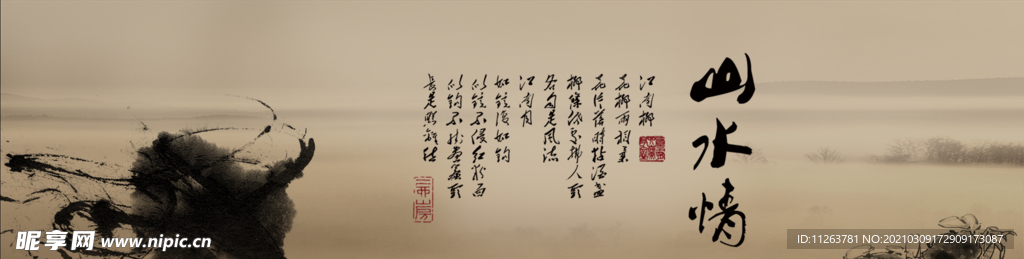 山水情
江南柳
花柳兩相柔
花片落時粘酒盞
柳條低處拂人頭
各自是風流
江南月
如鏡復如鈎
似鏡不侵紅粉面
似鈎不挂畫簾頭
長是照離愁
昵享网 www.nipic.cn
ID:11263781 NO:20210309172909173087